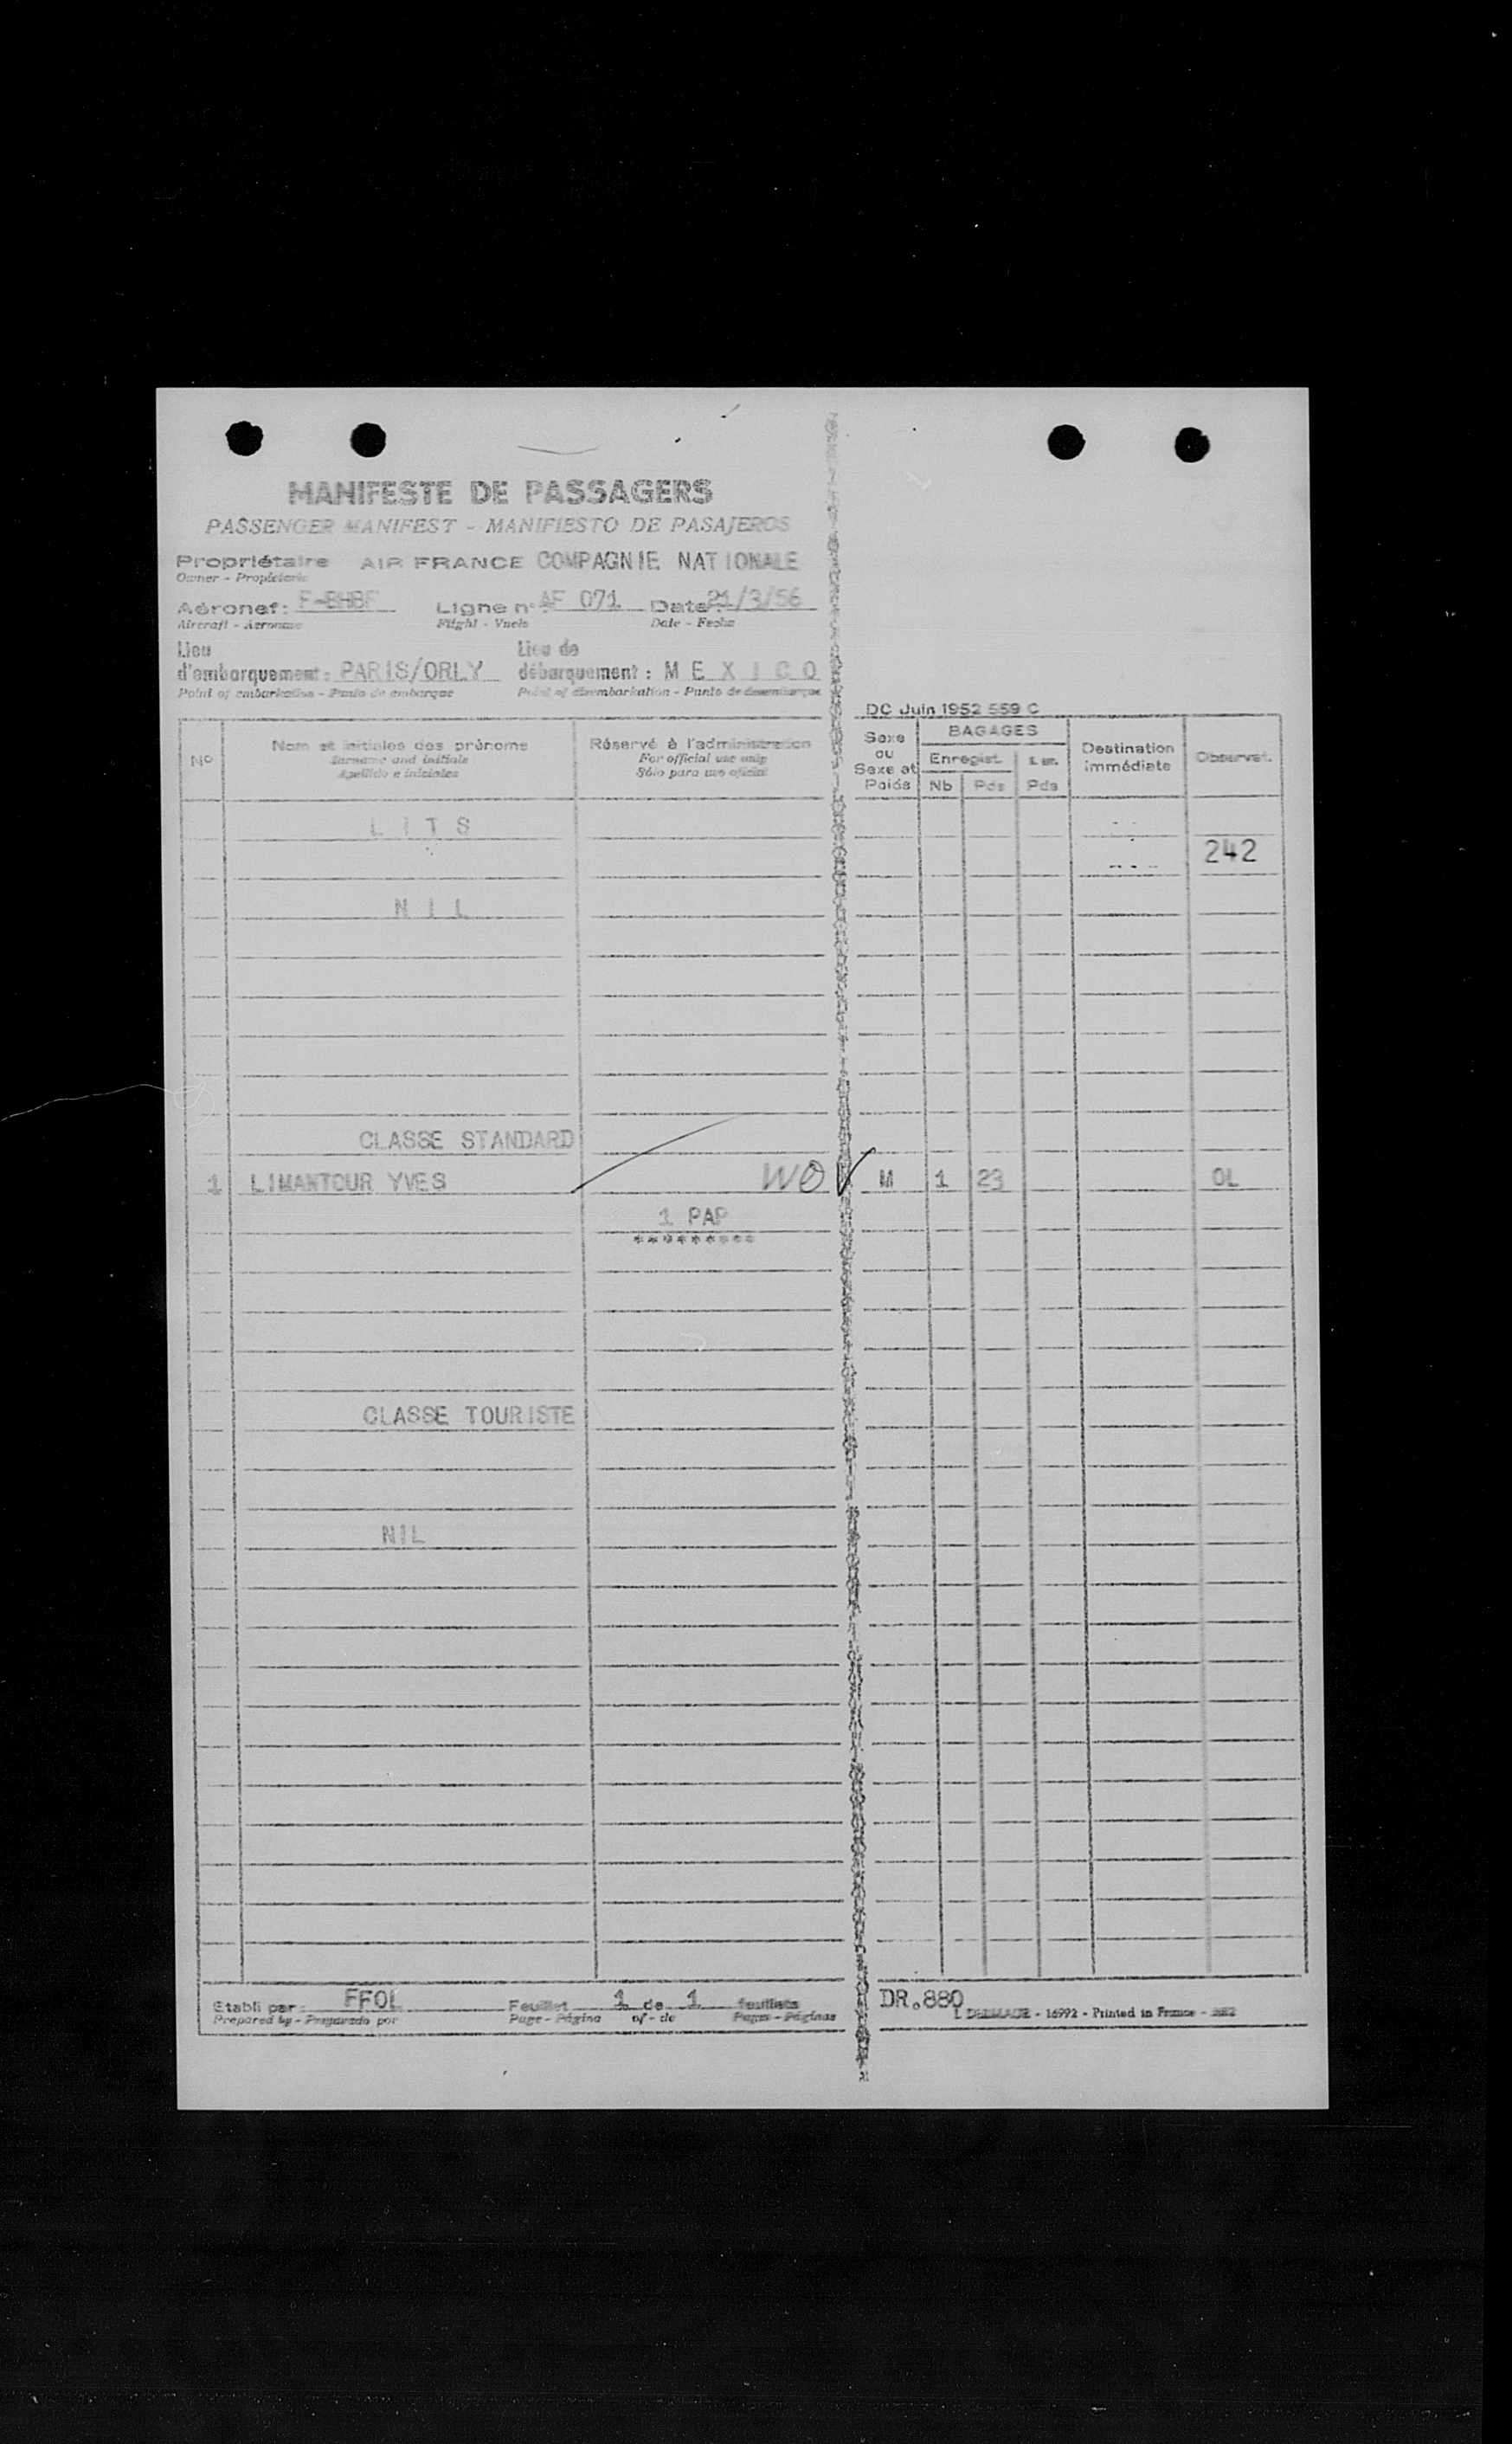 MANIFESTE DE PASSAGERS
PASSENGER MANIFEST - MANIFIESTO DE PASAJEROS
Propriétaire AIR FRANCE COMPAGNIE NATIONALE
Owner - Propietario
Aéronef: F-BHBF Ligne n° AF 071 Date: 21/3/56
Aircraft - Aeronave Flight - Vuelo Date - Fecha
Lieu d'embarquement: PARIS/ORLY Lieu de débarquement: M E X I C O
Point of embarkation - Punto de embarque Point of disembarkation - Punto de desembarque
DC Juin 1952 559 C
N° Nom et initiales des prénoms Réservé à l'administration Sexe ou Sexe et Poids BAGAGES Destination immédiate Observat.
Surname and initials For official use only Enregist.
Apellido e iniciales Sólo para uso oficial Nb Pds Pds
L I T S
242
N I L
CLASSE STANDARD
1 LIMANTOUR YVES WO M 1 23 OL
1 PAP
*********
CLASSE TOURISTE
NIL
Etabli par: FFOL Feuillet 1 de 1 feuillets DR.880
Prepared by - Preparado por Page - Página of - de Pages - Páginas - 16992 - Printed in France